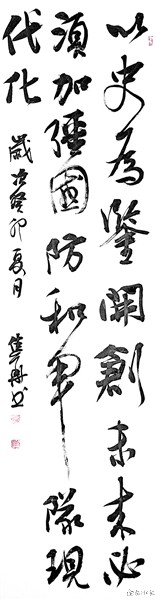 以史為鑒開創未来必
須加強國防和軍隊現
代化
歲次癸卯夏月